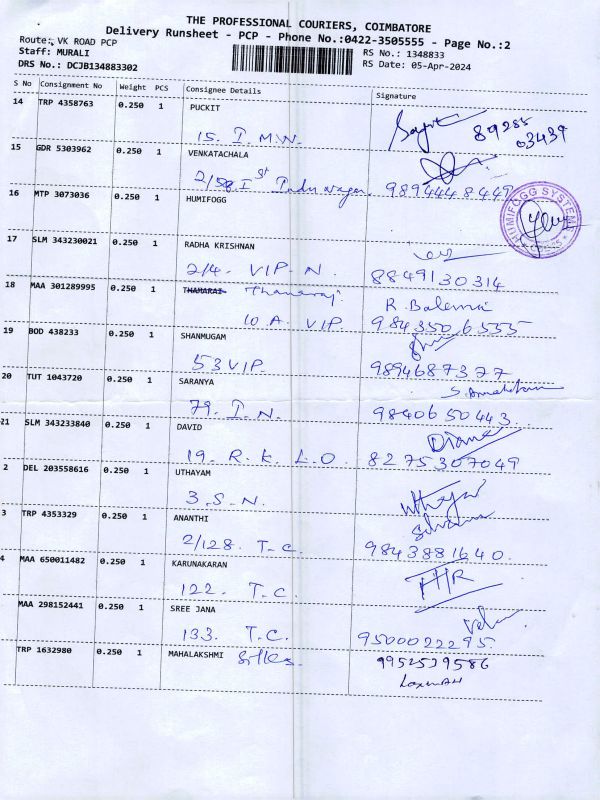 THE PROFESSIONAL COURIERS, COIMBATORE
Delivery Runsheet - PCP - Phone No.:0422-3505555 - Page No.:2
Route: VK ROAD PCP
Staff: MURALI
RS No.: 1348833
DRS No.: DCJB134883302
RS Date: 05-Apr-2024
S No Consignment No Weight PCS Consignee Details Signature
14 TRP 4358763 0.250 1 PUCKIT
15. I. M.W. 89255 03439
15 GDR 5303962 0.250 1 VENKATACHALA
Ist 9894448449
16 MTP 3073036 0.250 1 HUMIFOGG
HUMIFOGG SYSTEMS
17 SLM 343230021 0.250 1 RADHA KRISHNAN
2/4. VIP-N. 8849130314
18 MAA 301289995 0.250 1 THAMARAI Thamaraj
10 A. VIP. 9843506555
19 BOD 438233 0.250 1 SHANMUGAM
53 VIP. 9894687377
20 TUT 1043720 0.250 1 SARANYA
79. I. N. 9840650443
21 SLM 343233840 0.250 1 DAVID Diana
19. R. K. L. O. 8275307049
2 DEL 203558616 0.250 1 UTHAYAM
3. S. N. Uthaya
3 TRP 4353329 0.250 1 ANANTHI
2/128. T-C. 9843881640.
4 MAA 650011482 0.250 1 KARUNAKARAN
122. T.C.
MAA 298152441 0.250 1 SREE JANA
133. T.C. 9500022295
TRP 1632980 0.250 1 MAHALAKSHMI Silks 9952539586
Laxman